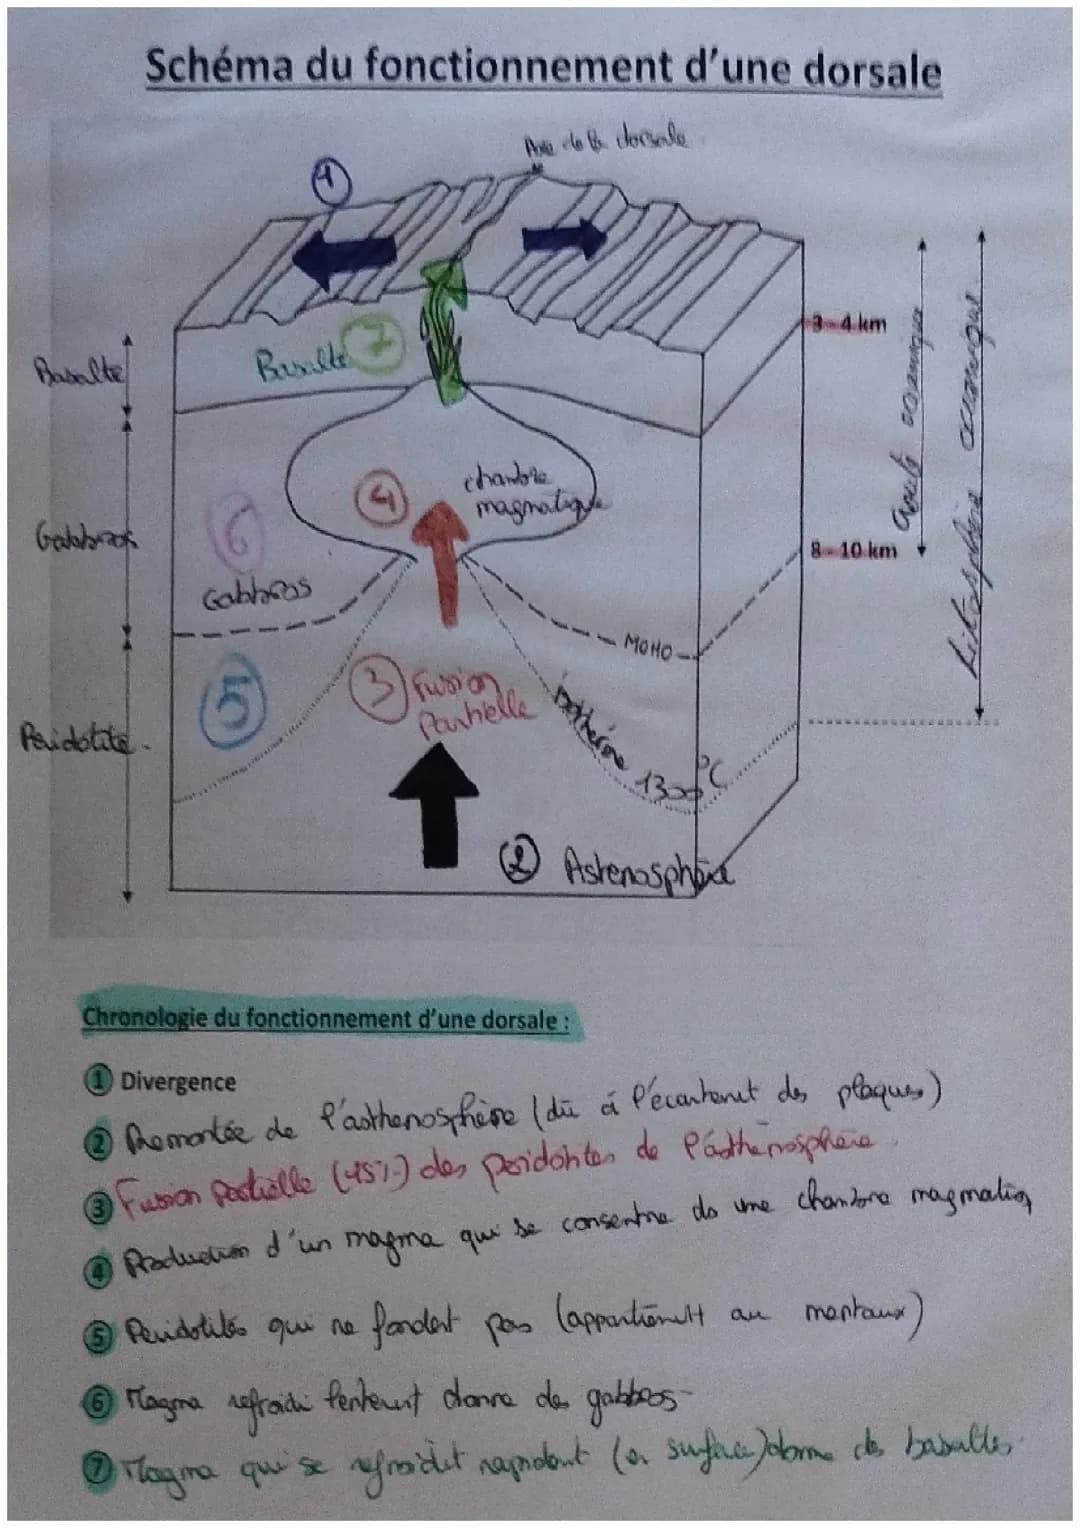 Schéma du fonctionnement d'une dorsale
Axe de la dorsale
1
3-4 km
Basalte
Basalte 7
croute océanique
Lithosphère océanique
chambre
magmatique
4
Gabbros
6
8-10 km
Gabbros
MOHO
5
3 Fusion
Partielle
Péridotite
isotherme 1300°C
2 Astenosphère
Chronologie du fonctionnement d'une dorsale :
1 Divergence
2 Remontée de l'asthenosphère (dû à l'écartement des plaques)
3 Fusion partielle (15%) des peridotites de l'asthénosphère
4 Production d'un magma qui se consentre ds une chambre magmatiq
5 Peridotites qui ne fondent pas (appartiennent au manteaux)
6 Magma refroidi lentement donne des gabbros
7 Magma qui se refroidit rapidement (en surface) donne des basaltes.